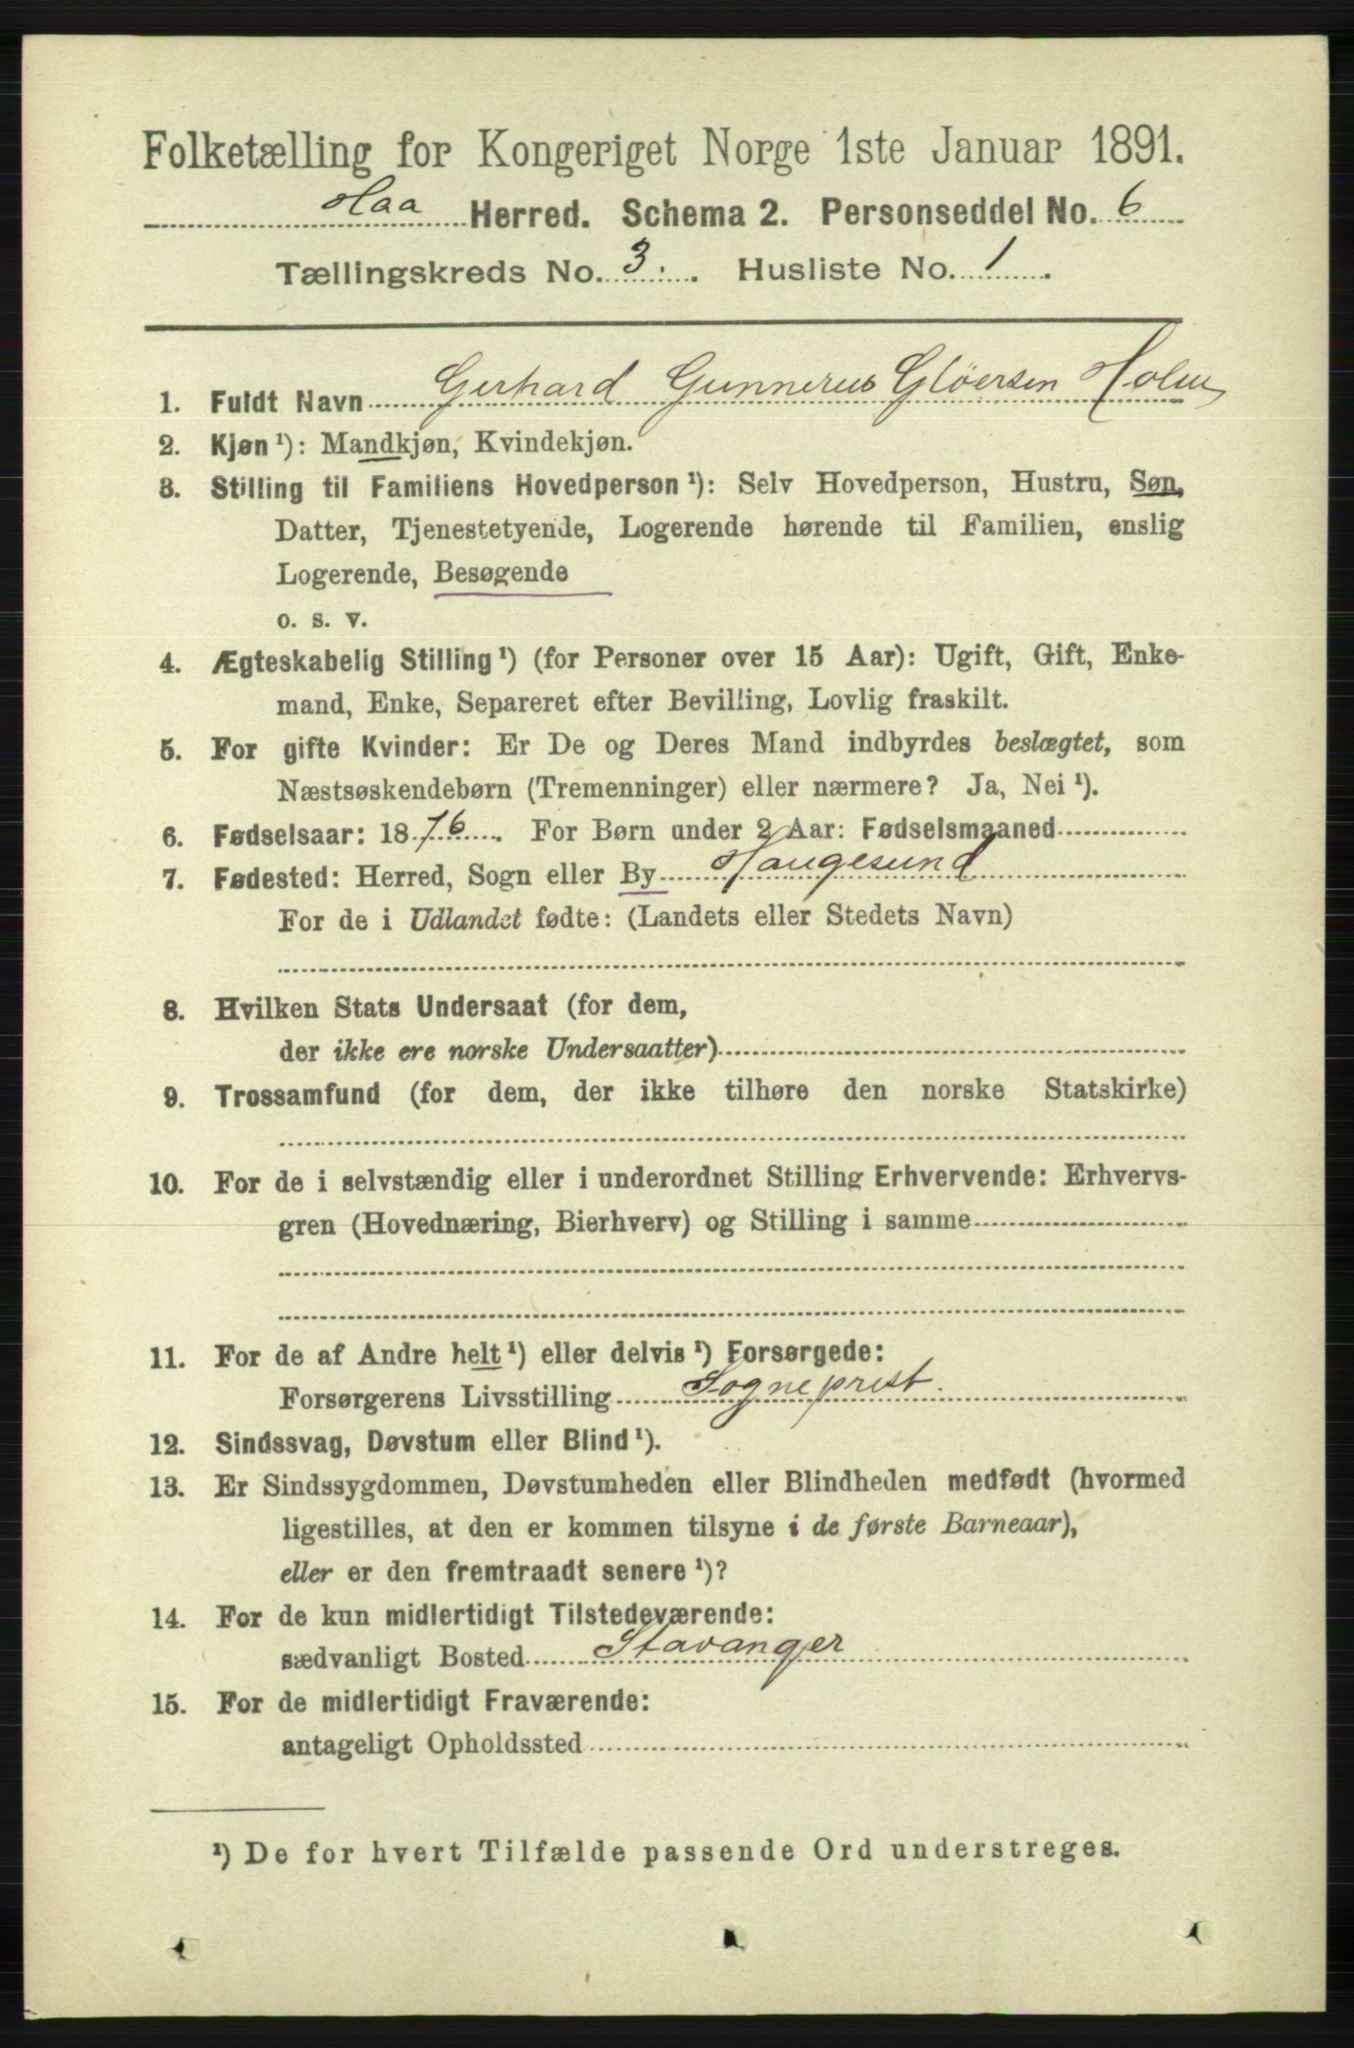 Folketælling for Kongeriget Norge 1ste Januar 1891.
Haa Herred. Schema 2. Personseddel No. 6
Tællingskreds No. 3. Husliste No. 1.
1. Fuldt Navn Gerhard Gunnerus Gløersen Holm
2. Kjøn ¹): Mandkjøn, Kvindekjøn.
3. Stilling til Familiens Hovedperson ¹): Selv Hovedperson, Hustru, Søn,
Datter, Tjenestetyende, Logerende hørende til Familien, enslig
Logerende, Besøgende
o. s. v.
4. Ægteskabelig Stilling ¹) (for Personer over 15 Aar): Ugift, Gift, Enke-
mand, Enke, Separeret efter Bevilling, Lovlig fraskilt.
5. For gifte Kvinder: Er De og Deres Mand indbyrdes beslægtet, som
Næstsøskendebørn (Tremenninger) eller nærmere? Ja, Nei ¹).
6. Fødselsaar: 1876. For Børn under 2 Aar: Fødselsmaaned
7. Fødested: Herred, Sogn eller By Haugesund
For de i Udlandet fødte: (Landets eller Stedets Navn)
8. Hvilken Stats Undersaat (for dem,
der ikke ere norske Undersaatter)
9. Trossamfund (for dem, der ikke tilhøre den norske Statskirke)
10. For de i selvstændig eller i underordnet Stilling Erhvervende: Erhvervs-
gren (Hovednæring, Bierhverv) og Stilling i samme
11. For de af Andre helt ¹) eller delvis ¹) Forsørgede:
Forsørgerens Livsstilling Sogneprest.
12. Sindssvag, Døvstum eller Blind ¹).
13. Er Sindssygdommen, Døvstumheden eller Blindheden medfødt (hvormed
ligestilles, at den er kommen tilsyne i de første Barneaar),
eller er den fremtraadt senere ¹)?
14. For de kun midlertidigt Tilstedeværende:
sædvanligt Bosted Stavanger
15. For de midlertidigt Fraværende:
antageligt Opholdssted
¹) De for hvert Tilfælde passende Ord understreges.